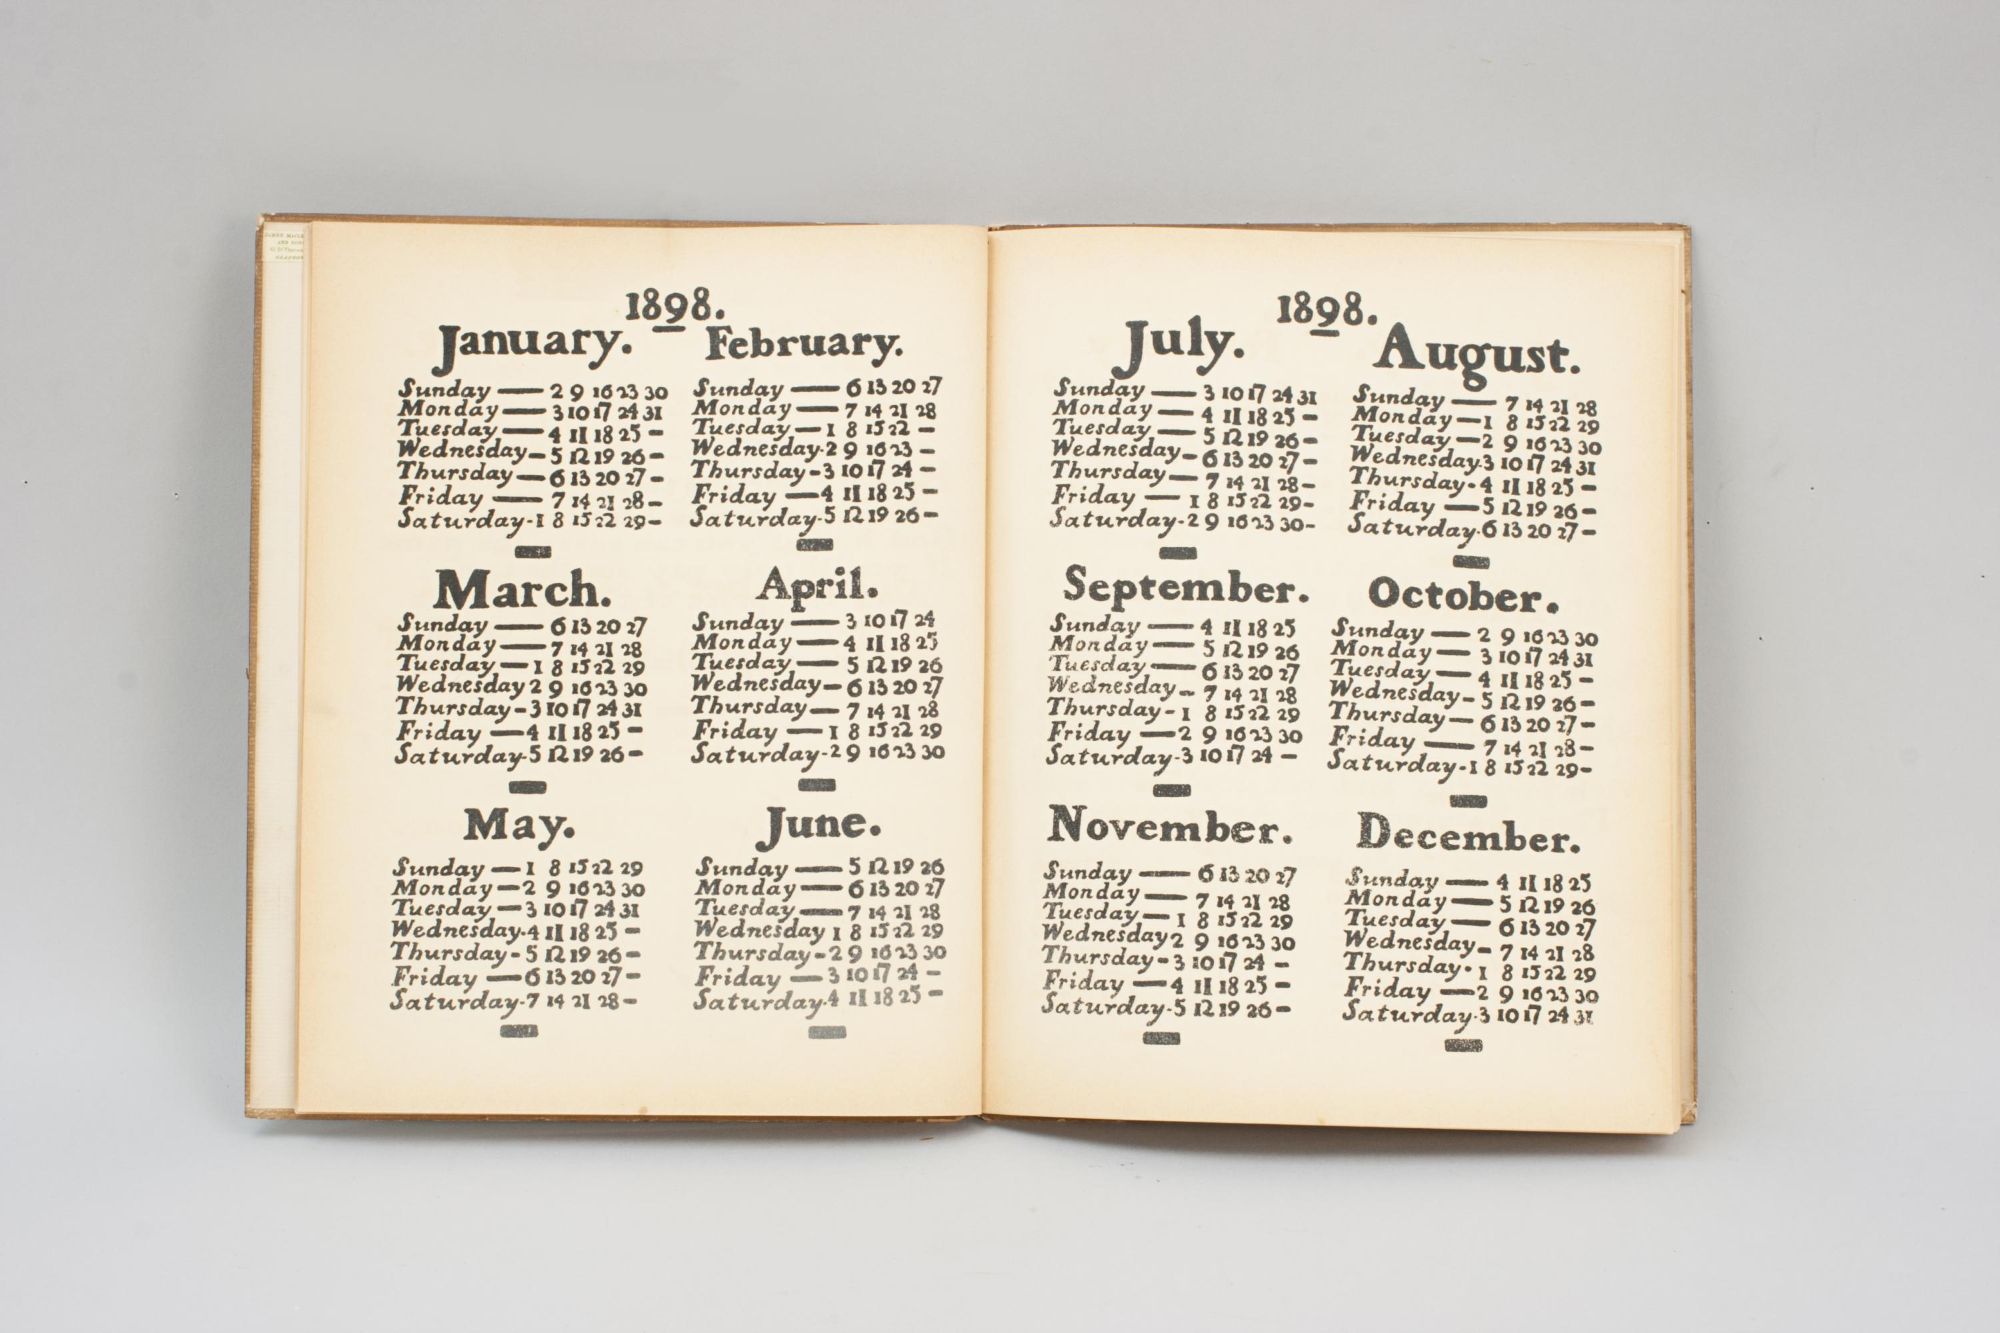 1898.
January.
Sunday — 2 9 16 23 30
Monday — 3 10 17 24 31
Tuesday — 4 11 18 25 –
Wednesday – 5 12 19 26 –
Thursday — 6 13 20 27 –
Friday — 7 14 21 28 –
Saturday - 1 8 15 22 29 –
February.
Sunday — 6 13 20 27
Monday — 7 14 21 28
Tuesday — 1 8 15 22 –
Wednesday - 2 9 16 23 –
Thursday – 3 10 17 24 –
Friday — 4 11 18 25 –
Saturday - 5 12 19 26 –
March.
Sunday — 6 13 20 27
Monday — 7 14 21 28
Tuesday — 1 8 15 22 29
Wednesday 2 9 16 23 30
Thursday – 3 10 17 24 31
Friday — 4 11 18 25 –
Saturday - 5 12 19 26 –
April.
Sunday — 3 10 17 24
Monday — 4 11 18 25
Tuesday — 5 12 19 26
Wednesday – 6 13 20 27
Thursday — 7 14 21 28
Friday — 1 8 15 22 29
Saturday - 2 9 16 23 30
May.
Sunday — 1 8 15 22 29
Monday — 2 9 16 23 30
Tuesday — 3 10 17 24 31
Wednesday - 4 11 18 25 –
Thursday - 5 12 19 26 –
Friday — 6 13 20 27 –
Saturday - 7 14 21 28 –
June.
Sunday — 5 12 19 26
Monday — 6 13 20 27
Tuesday — 7 14 21 28
Wednesday 1 8 15 22 29
Thursday - 2 9 16 23 30
Friday — 3 10 17 24 –
Saturday - 4 11 18 25 –
1898.
July.
Sunday — 3 10 17 24 31
Monday — 4 11 18 25 –
Tuesday — 5 12 19 26 –
Wednesday – 6 13 20 27 –
Thursday — 7 14 21 28 –
Friday — 1 8 15 22 29 –
Saturday - 2 9 16 23 30 –
August.
Sunday — 7 14 21 28
Monday — 1 8 15 22 29
Tuesday — 2 9 16 23 30
Wednesday - 3 10 17 24 31
Thursday - 4 11 18 25 –
Friday — 5 12 19 26 –
Saturday - 6 13 20 27 –
September.
Sunday — 4 11 18 25
Monday — 5 12 19 26
Tuesday — 6 13 20 27
Wednesday – 7 14 21 28
Thursday - 1 8 15 22 29
Friday — 2 9 16 23 30
Saturday - 3 10 17 24 –
October.
Sunday — 2 9 16 23 30
Monday — 3 10 17 24 31
Tuesday — 4 11 18 25 –
Wednesday – 5 12 19 26 –
Thursday — 6 13 20 27 –
Friday — 7 14 21 28 –
Saturday - 1 8 15 22 29 –
November.
Sunday — 6 13 20 27
Monday — 7 14 21 28
Tuesday — 1 8 15 22 29
Wednesday 2 9 16 23 30
Thursday - 3 10 17 24 –
Friday — 4 11 18 25 –
Saturday - 5 12 19 26 –
December.
Sunday — 4 11 18 25
Monday — 5 12 19 26
Tuesday — 6 13 20 27
Wednesday – 7 14 21 28
Thursday - 1 8 15 22 29
Friday — 2 9 16 23 30
Saturday - 3 10 17 24 31